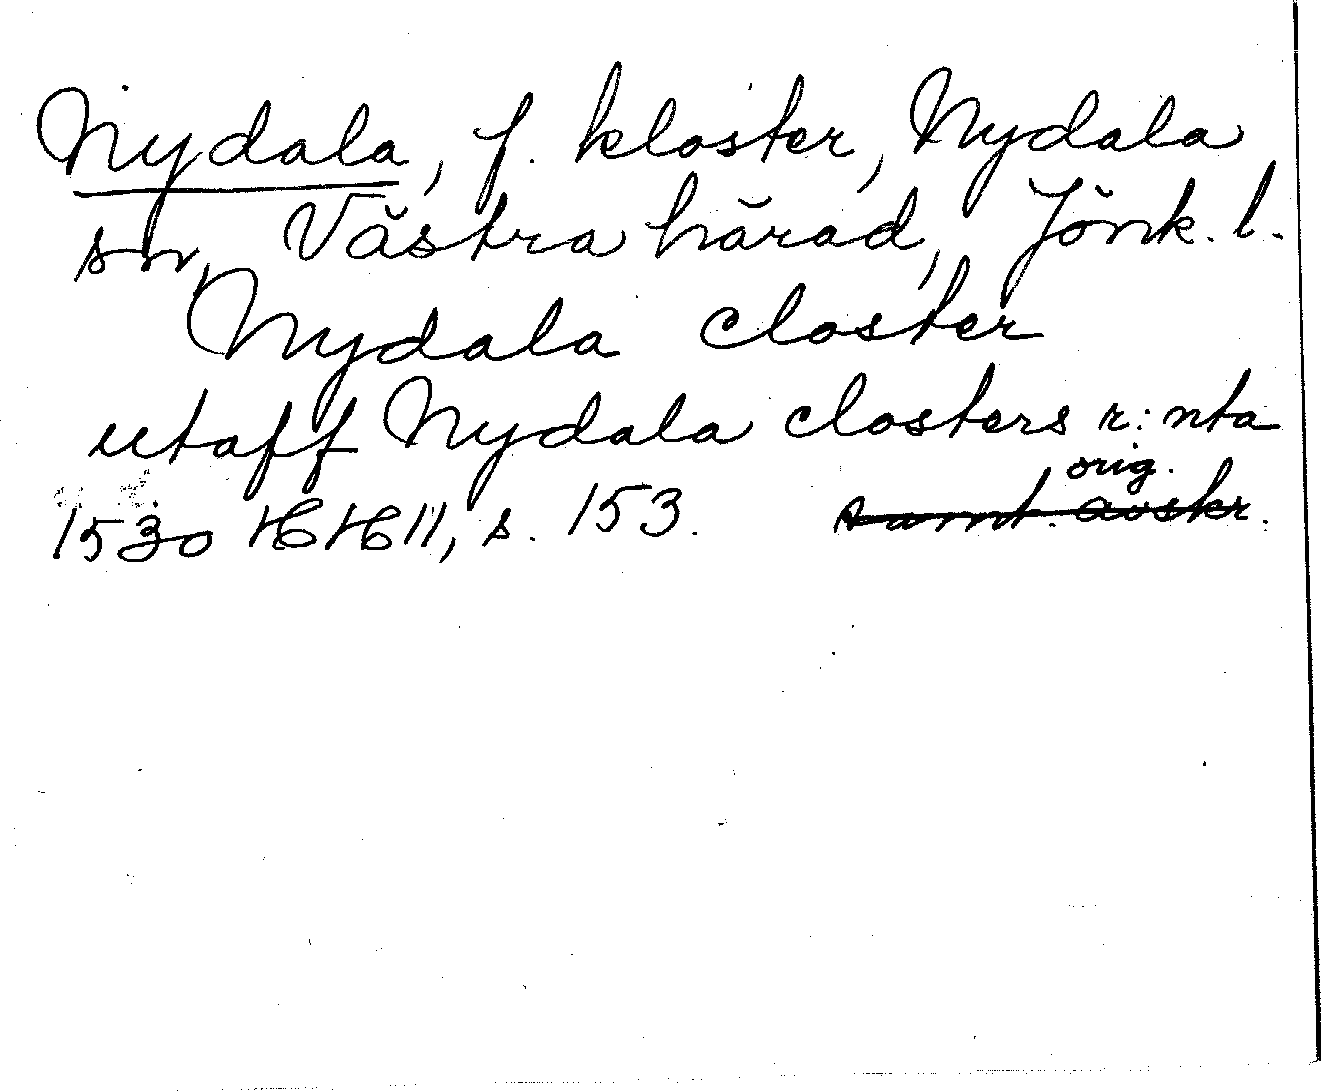 Nydala, f. kloster, Nydala
sn, Västra härad, Jönk. l.
Nydala closter
utaff Nydala closters r:nta
orig.
1530 HH 11, s. 153. samt. avskr.